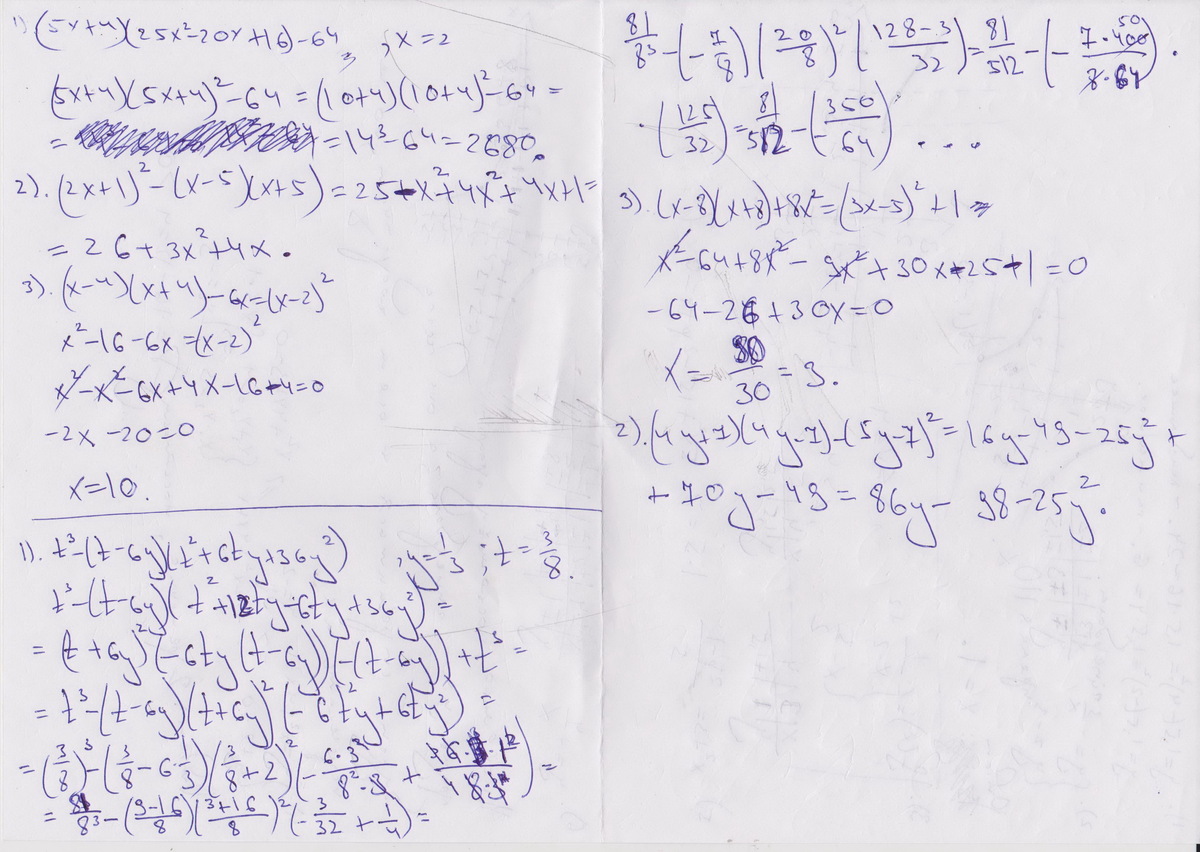 1) (5x+4)(25x²-20x+16)-64, ; x=2
(5x+4)(5x+4)²-64=(10+4)(10+4)²-64=
= =14³-64=2680.
2). (2x+1)²-(x-5)(x+5)=25-x²+4x²+4x+1=
=26+3x²+4x.
3). (x-4)(x+4)-6x=(x-2)²
x²-16-6x=(x-2)²
x²-x²-6x+4x-16-4=0
-2x-20=0
x=10.
1). t³-(t-6y)(t²+6ty+36y²) , y=1/3 ; t=3/8.
t³-(t-6y)(t²+12ty-6ty+36y²)=
=(t+6y)²(-6ty(t-6y))(-(t-6y))+t³=
=t³-(t-6y)(t+6y)²(-6t²y+6ty²)=
=(3/8)³-(3/8-6·1/3)(3/8+2)²(-6·3²/8²·3+
=81/8³-(9-16/8)(3+16/8)²(-3/32+1/4)=
81/8³-(-7/8)(20/8)²(128-3/32)=81/512-(-7·400 50/8·64)·
·(125/32)=81/512-(-350/64)...
3). (x-8)(x+8)+8x²=(3x-5)²+1
x²-64+8x²-9x²+30x-25-1=0
-64-26+30x=0
x=90/30=3.
2). (4y+7)(4y-7)-(5y-7)²=16y-49-25y²+
+70y-49=86y-98-25y².